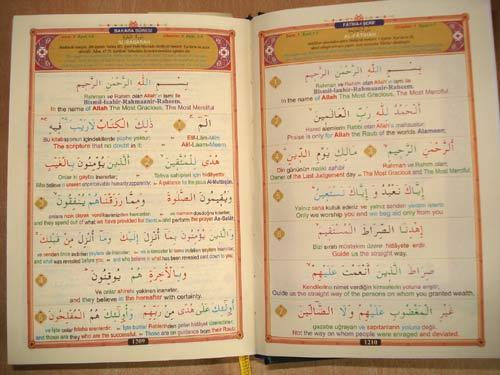 FATİHA-I ŞERİF
AL-FATIHAH
بِسْمِ اللَّهِ الرَّحْمَٰنِ الرَّحِيمِ
Rahman ve Rahim olan Allah'ın ismi ile
Bismil-laahir-Rahmaanir-Raheem.
In the name of Allah The Most Gracious, The Most Merciful
اَلْحَمْدُ لِلَّهِ رَبِّ الْعَالَمِينَ
Hamd alemlerin Rabbi olan Allah'a mahsustur.
Praise is only for Allah the Raub of the worlds Alameem;
اَلرَّحْمَٰنِ الرَّحِيمِ مَالِكِ يَوْمِ الدِّينِ
Din gününün maliki Rahman ve Rahim olan;
Owner of the Last Judgement day The Most Gracious and The Most Merciful
إِيَّاكَ نَعْبُدُ وَإِيَّاكَ نَسْتَعِينُ
Yalnız sana kulluk ederiz ve yalnız senden yardım isteriz
Only we worship you and we beg aid only from you
اِهْدِنَا الصِّرَاطَ الْمُسْتَقِيمَ
Bizi sıratı müstakim üzere hidâyete erdir.
Guide us the straight way.
صِرَاطَ الَّذِينَ أَنْعَمْتَ عَلَيْهِمْ
Kendilerine nimet verdiğin kimselerin yoluna eriştir,
Guide us the straight way of the persons on whom you granted wealth,
غَيْرِ الْمَغْضُوبِ عَلَيْهِمْ وَلَا الضَّالِّينَ
gazaba uğrayan ve sapıtanların yoluna değil.
Not the way on whom people were enraged and deviated.
1210
BAKARA SÛRESİ
بِسْمِ اللَّهِ الرَّحْمَٰنِ الرَّحِيمِ
Rahman ve Rahim olan Allah'ın ismi ile
Bismil-laahir-Rahmaanir-Raheem.
In the name of Allah The Most Gracious, The Most Merciful
الٓمٓ ذَٰلِكَ الْكِتَابُ لَا رَيْبَ فِيهِ
Elif-Lâm-Mîm
The scripture that no doubt in it Alif-Laam-Meem
هُدًى لِلْمُتَّقِينَ الَّذِينَ يُؤْمِنُونَ بِالْغَيْبِ
Onlar ki gayba inanırlar;
A guidance to the pious
وَيُقِيمُونَ الصَّلَوٰةَ وَمِمَّا رَزَقْنَاهُمْ يُنْفِقُونَ
and they spend out of what we have provided for them and perform the prayer As-Salât
وَالَّذِينَ يُؤْمِنُونَ بِمَا أُنْزِلَ إِلَيْكَ وَمَا أُنْزِلَ مِنْ قَبْلِكَ
and what was revealed before you, and who believe in what has been revealed sent down to you
وَبِالْآخِرَةِ هُمْ يُوقِنُونَ
Ve onlar ahirete yakinen inanırlar,
and they believe in the hereafter with certainty.
أُولَٰئِكَ عَلَىٰ هُدًى مِنْ رَبِّهِمْ وَأُولَٰئِكَ هُمُ الْمُفْلِحُونَ
and those are they who are the successful. Those are on guidance from their Raub
1209